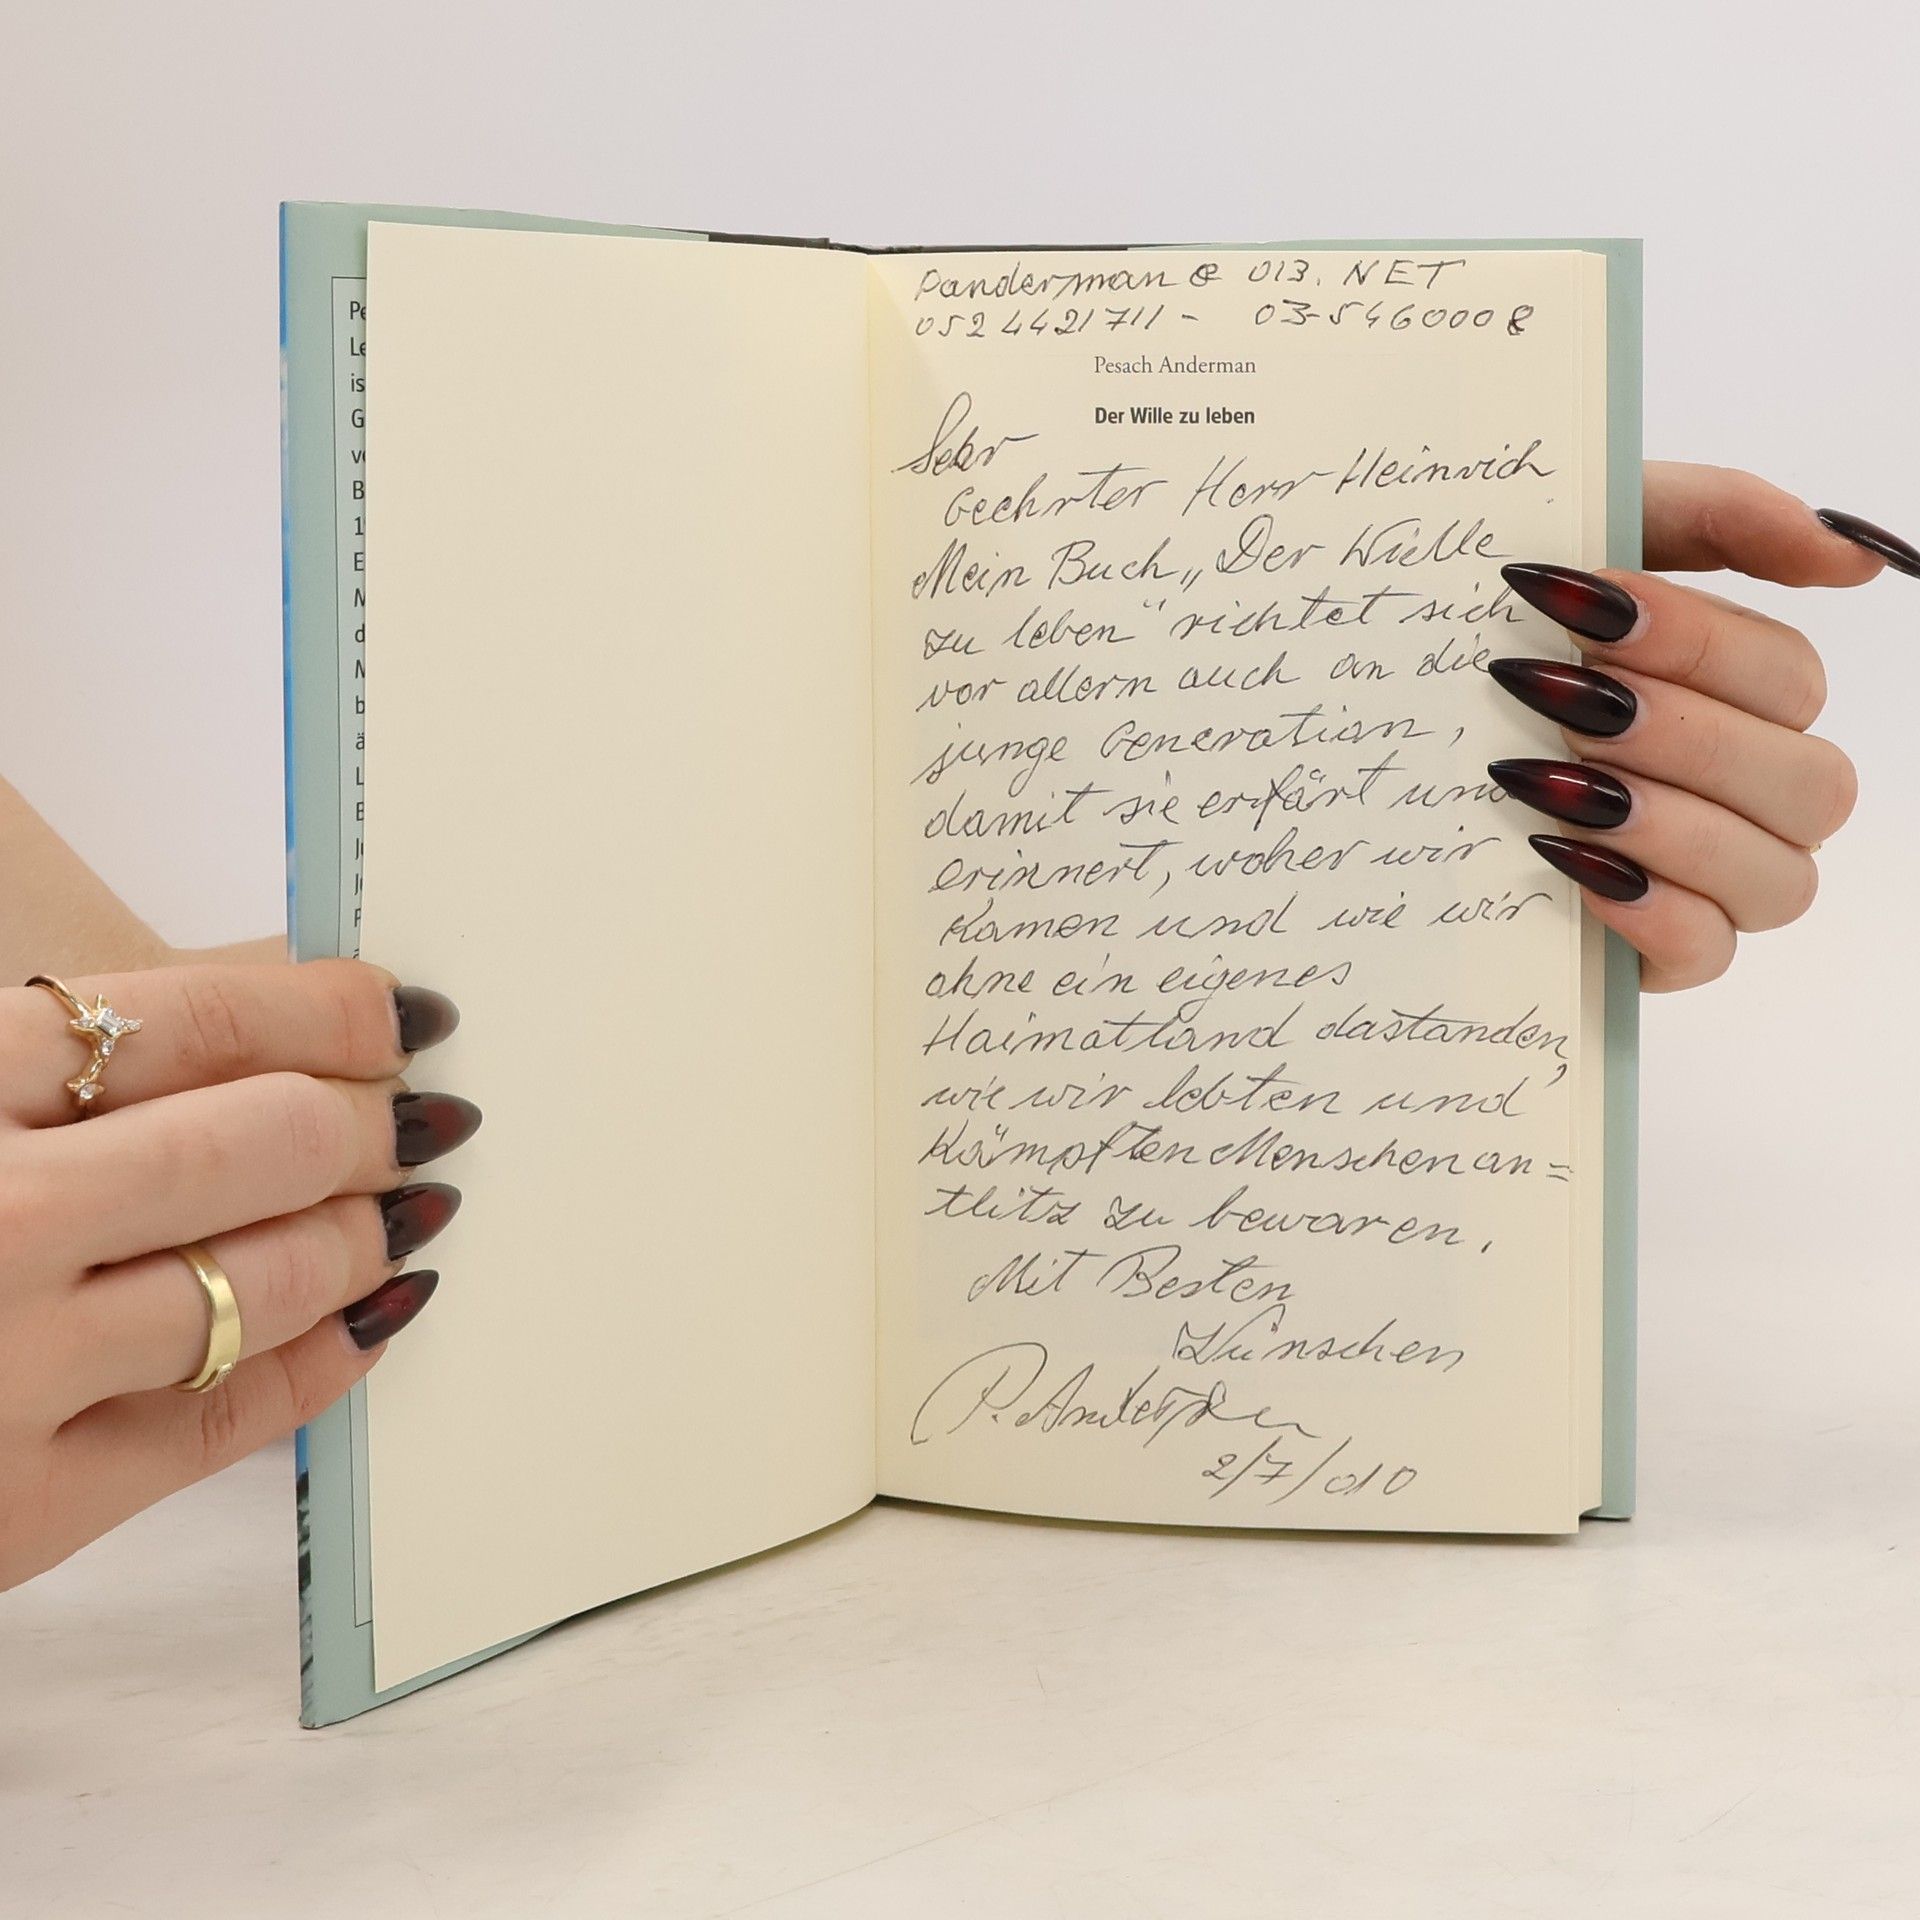 Panderman@013.NET
0524421711 - 03-5460008
Pesach Anderman
Der Wille zu leben
Sehr
Geehrter Herr Heinrich
Mein Buch „Der Wielle
zu leben" richtet sich
vor allem auch an die
junge Generation,
damit sie erfärt und
erinnert, woher wir
Kamen und wie wir
ohne ein eigenes
Haimatland dastanden,
wie wir lebten und
Kämpften Menschenan=
tlitz zu bewaren.
Mit Besten
Wünschen
P. Anderman
2/7/010
Pe
Le
is
G
B
E
M
d
M
b
ä
L